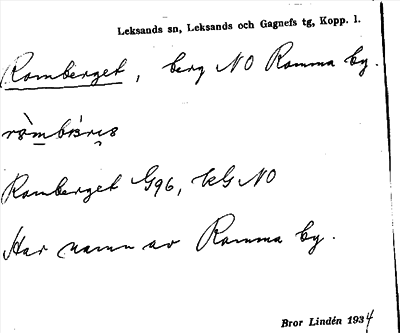 Leksands sn, Leksands och Gagnefs tg, Kopp. l.
Romberget, berg NO Romma by.
Romberget G96, kG NO
Har namn av Romma by.
Bror Lindén 1934